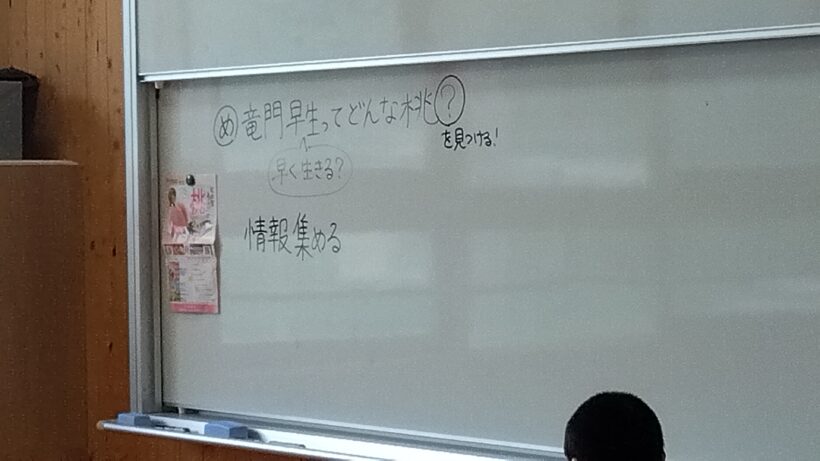 め 竜門早生ってどんな桃?
を見つける!
早く生きる?
情報集める
桃